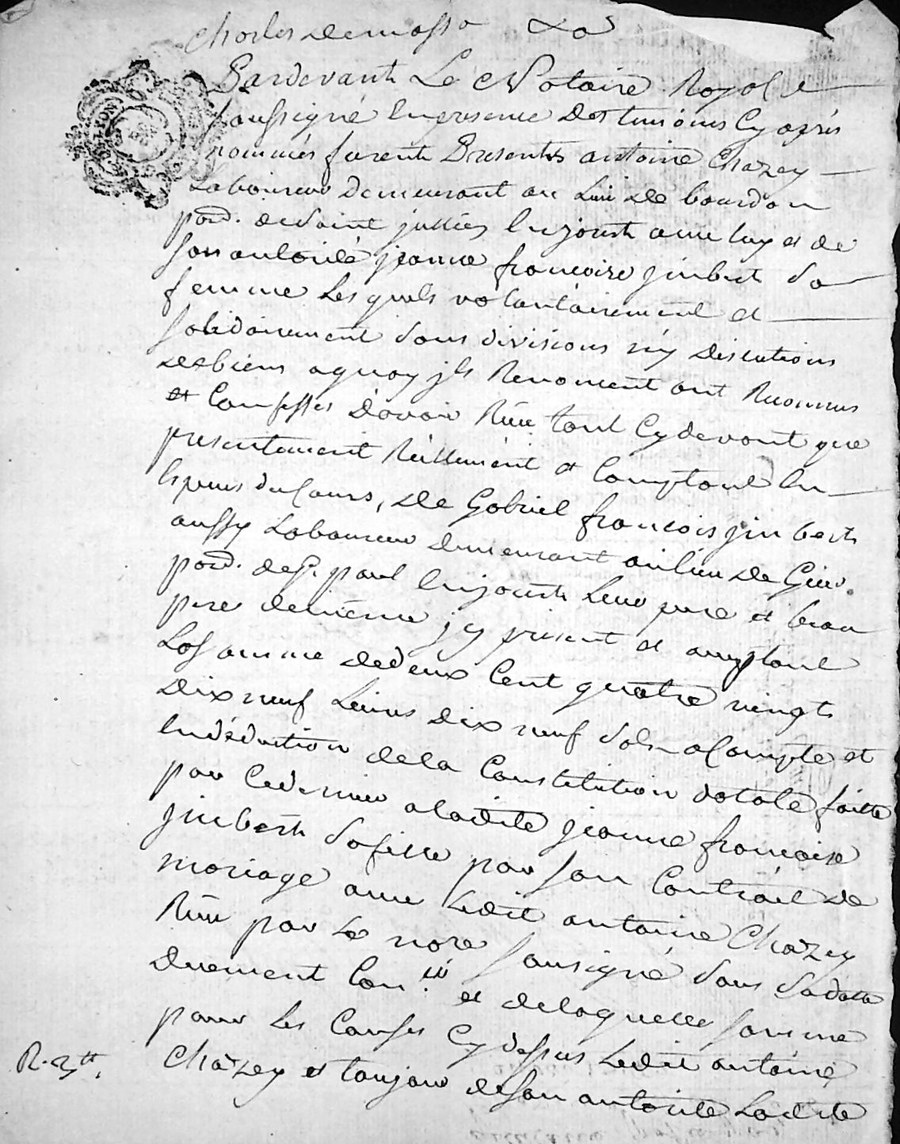 Charles Demasso
Pardevant Le Notaire Royal
soussigné En presence Des temoins Cy aprés
nommés furent Presents antoine Chazey
Laboureur Demeurant au Lieu De bourdon
par. de Saint jullien En joust avec luy et de
son autorité jeanne francoise jmbert sa
femme Les quels volontairement et
solidairement sans divisions n'y discutions
de biens a quoy jls Renoncent ont Reconnus
et Confessés d'avoir Reçu tant Cy devant que
presentement Réellement et Comptant En
Espeices du Cours, De Gabriel francois jmbert
aussy Laboureur Demeurant au lieu de
par. de St. paul En joust Leur pere et beau
pere demême jcy present et acceptant
La somme de deux Cent quatre vingts
Dix neuf Livres Dix neuf sols a Compte et
En déduction de la Constitution dotale faitte
par Ce dernier a ladite jeanne francoise
jmbert sa fille par son Contrat de
mariage avec Ledit antoine Chazey
Reçu par Le nore soussigné sous sa datte
Duement Con.lé et de laquelle somme
pour Les Causes Cy dessus Ledit antoine
Chazey et toujour de son autorité Ladite
R. 3tt.